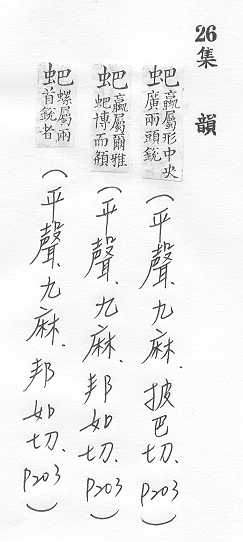 26集 韻
蚆蠃屬形中央廣兩頭銳（平聲.九麻.披巴切.P203）
蚆蠃屬爾雅蚆博而頯（平聲.九麻.邦如切.P203）
蚆螺屬兩首銳者（平聲.九麻.邦如切.P203）